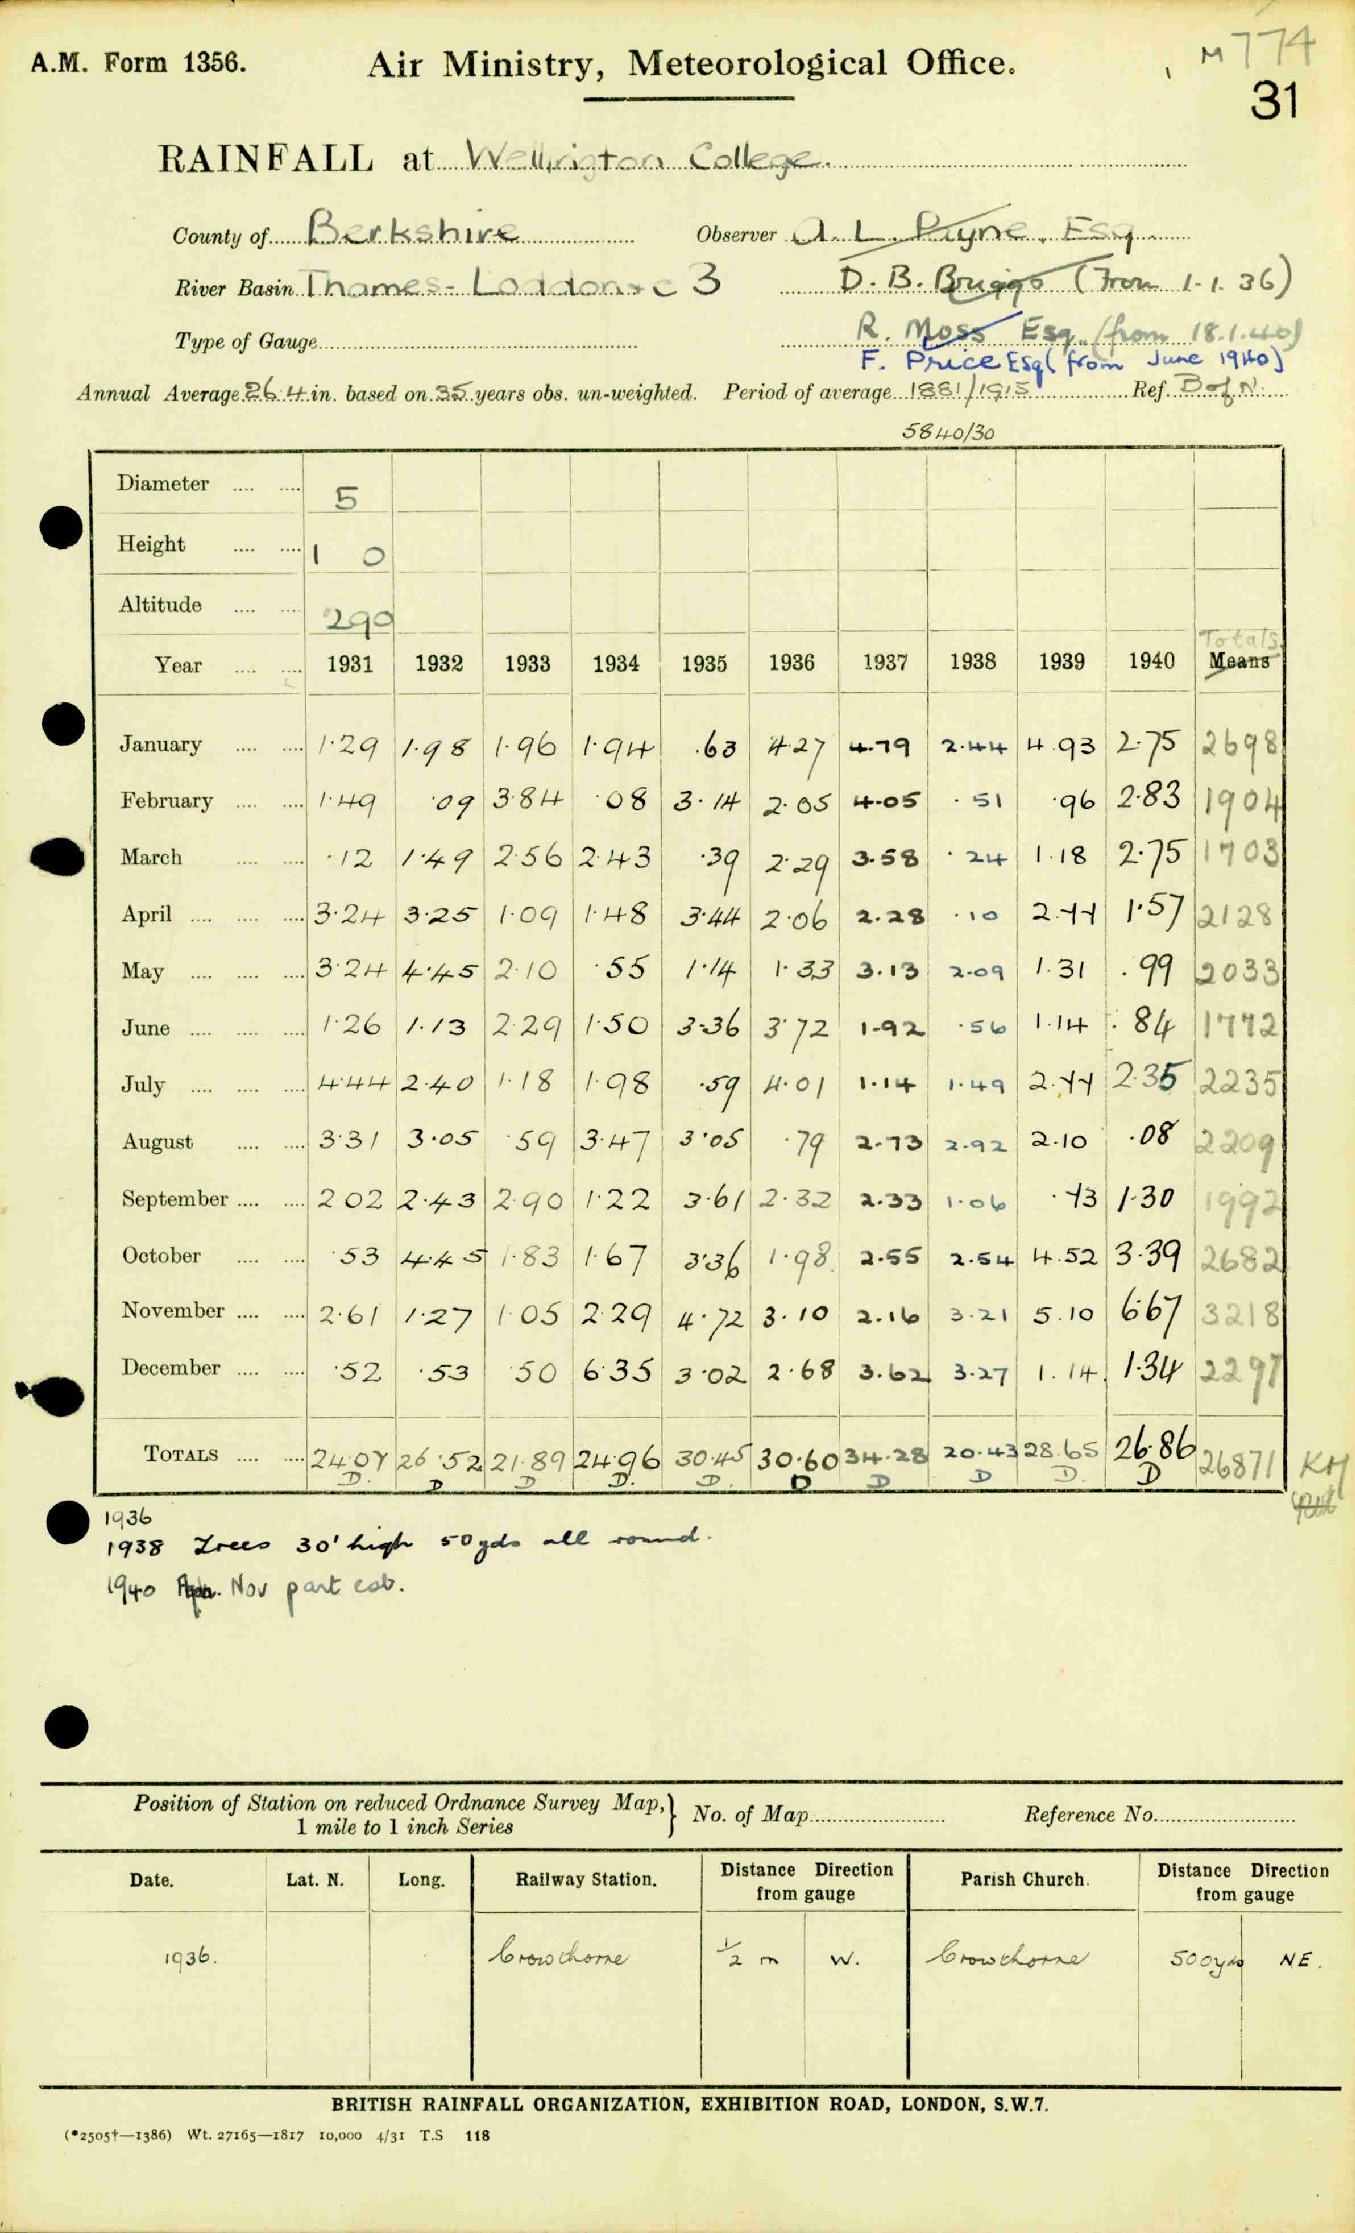 A.M. Form 1356.
Air Ministry, Meteorological Office.
M 774
31
RAINFALL at Wellington College.
County of Berkshire Observer A. L. Payne, Esq.
River Basin Thames - Loddon &c 3 D. B. Briggs (From 1.1.36)
Type of Gauge R. Moss Esq. (from 18.1.40)
F. Price Esq (from June 1940)
Annual Average 26.4 in. based on 35 years obs. un-weighted. Period of average 1881/1915 Ref. B of N.
5840/30
Diameter 5
Height 1 0
Altitude 290
Totals
Year 1931 1932 1933 1934 1935 1936 1937 1938 1939 1940 Means
January 1.29 1.98 1.96 1.94 .63 4.27 4.79 2.44 4.93 2.75 2698
February 1.49 .09 3.84 .08 3.14 2.05 4.05 .51 .96 2.83 1904
March .12 1.49 2.56 2.43 .39 2.29 3.58 .24 1.18 2.75 1703
April 3.24 3.25 1.09 1.48 3.44 2.06 2.28 .10 2.77 1.57 2128
May 3.24 4.45 2.10 .55 1.14 1.33 3.13 2.09 1.31 .99 2033
June 1.26 1.13 2.29 1.50 3.36 3.72 1.92 .56 1.14 .84 1772
July 4.44 2.40 1.18 1.98 .59 4.01 1.14 1.49 2.77 2.35 2235
August 3.31 3.05 .59 3.47 3.05 .79 2.73 2.92 2.10 .08 2209
September 2.02 2.43 2.90 1.22 3.61 2.32 2.33 1.06 .73 1.30 1992
October .53 4.45 1.83 1.67 3.36 1.98 2.55 2.54 4.52 3.39 2682
November 2.61 1.27 1.05 2.29 4.72 3.10 2.16 3.21 5.10 6.67 3218
December .52 .53 .50 6.35 3.02 2.68 3.62 3.27 1.14 1.34 2297
TOTALS 24.07 26.52 21.89 24.96 30.45 30.60 34.28 20.43 28.65 26.86 26871 KM
D. D D D. D. D D D D. D
1936
1938 Trees 30' high 50yds all round.
1940 Nov part est.
Position of Station on reduced Ordnance Survey Map, No. of Map Reference No.
1 mile to 1 inch Series
Date. Lat. N. Long. Railway Station. Distance Direction from gauge Parish Church. Distance Direction from gauge
1936. Crowthorne 1/2 m W. Crowthorne 500yds NE.
BRITISH RAINFALL ORGANIZATION, EXHIBITION ROAD, LONDON, S.W.7.
(*2505†—1386) Wt. 27165—1817 10,000 4/31 T.S 118